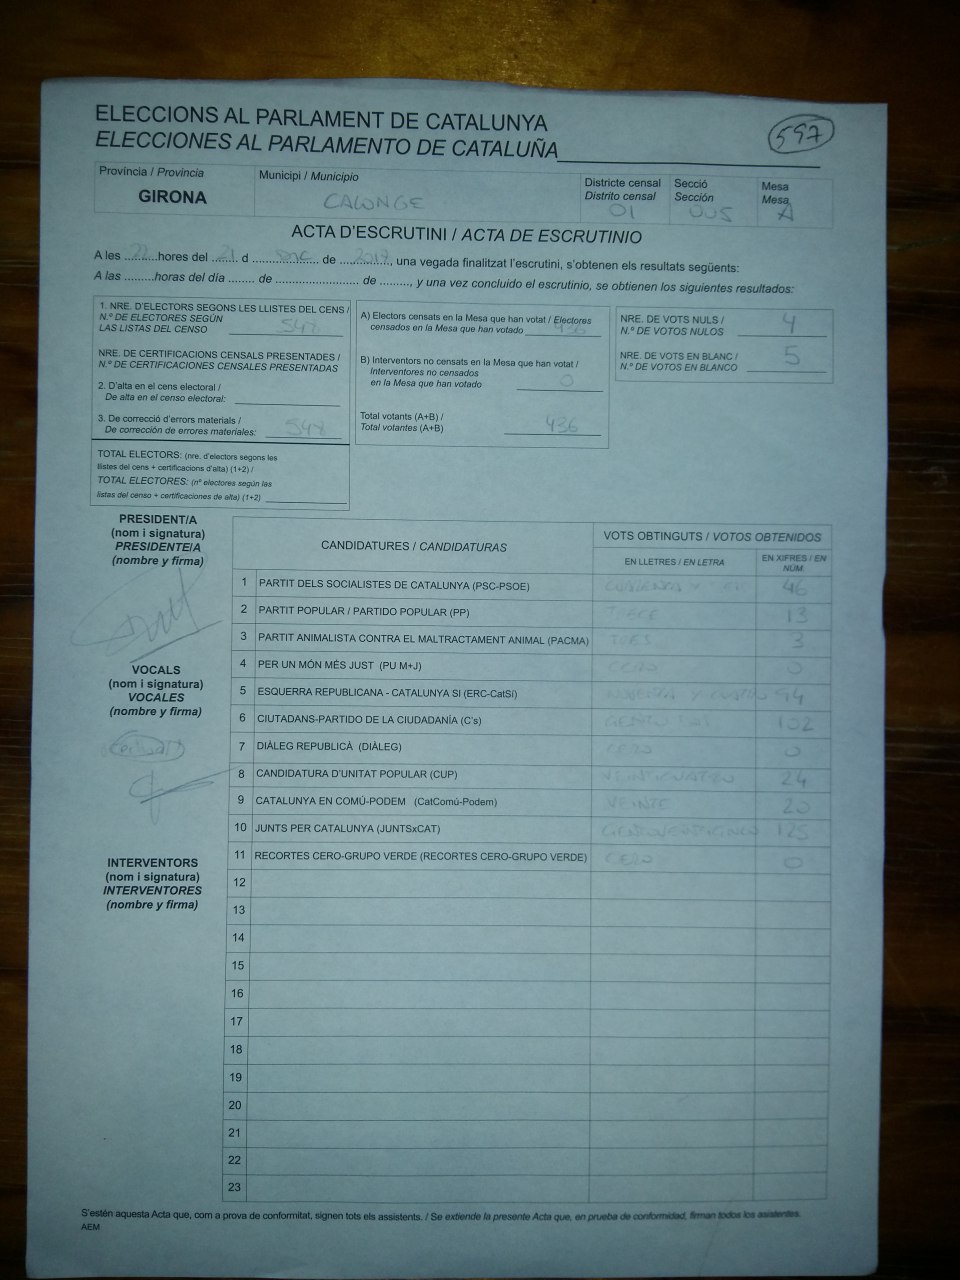 ELECCIONS AL PARLAMENT DE CATALUNYA
ELECCIONES AL PARLAMENTO DE CATALUÑA
597
Província / Provincia
GIRONA
Municipi / Municipio
CALONGE
Districte censal
Distrito censal
01
Secció
Sección
005
Mesa
Mesa
A
ACTA D'ESCRUTINI / ACTA DE ESCRUTINIO
A les ...22...hores del ..21.. d ....... de ........., una vegada finalitzat l'escrutini, s'obtenen els resultats següents:
A las .........horas del día ........ de ......................... de ........., y una vez concluido el escrutinio, se obtienen los siguientes resultados:
1. NRE. D'ELECTORS SEGONS LES LLISTES DEL CENS /
N.º DE ELECTORES SEGÚN
LAS LISTAS DEL CENSO
NRE. DE CERTIFICACIONS CENSALS PRESENTADES /
N.º DE CERTIFICACIONES CENSALES PRESENTADAS
2. D'alta en el cens electoral /
De alta en el censo electoral:
3. De correcció d'errors materials /
De corrección de errores materiales:
TOTAL ELECTORS: (nre. d'electors segons les
llistes del cens + certificacions d'alta) (1+2) /
TOTAL ELECTORES: (nº electores según las
listas del censo + certificaciones de alta) (1+2)
A) Electors censats en la Mesa que han votat / Electores
censados en la Mesa que han votado 436
B) Interventors no censats en la Mesa que han votat /
Interventores no censados
en la Mesa que han votado 0
Total votants (A+B) /
Total votantes (A+B) 436
NRE. DE VOTS NULS /
N.º DE VOTOS NULOS 4
NRE. DE VOTS EN BLANC /
N.º DE VOTOS EN BLANCO 5
PRESIDENT/A
(nom i signatura)
PRESIDENTE/A
(nombre y firma)
VOCALS
(nom i signatura)
VOCALES
(nombre y firma)
INTERVENTORS
(nom i signatura)
INTERVENTORES
(nombre y firma)
CANDIDATURES / CANDIDATURAS
VOTS OBTINGUTS / VOTOS OBTENIDOS
EN LLETRES / EN LETRA
EN XIFRES / EN NÚM.
1 PARTIT DELS SOCIALISTES DE CATALUNYA (PSC-PSOE) 46
2 PARTIT POPULAR / PARTIDO POPULAR (PP) TRECE 13
3 PARTIT ANIMALISTA CONTRA EL MALTRACTAMENT ANIMAL (PACMA) TRES 3
4 PER UN MÓN MÉS JUST (PU M+J) CERO 0
5 ESQUERRA REPUBLICANA - CATALUNYA SI (ERC-CatSí) NOVENTA Y CUATRO 94
6 CIUTADANS-PARTIDO DE LA CIUDADANÍA (C's) CIENTO DOS 102
7 DIÀLEG REPUBLICÀ (DIÀLEG) CERO 0
8 CANDIDATURA D'UNITAT POPULAR (CUP) VEINTICUATRO 24
9 CATALUNYA EN COMÚ-PODEM (CatComú-Podem) VEINTE 20
10 JUNTS PER CATALUNYA (JUNTSxCAT) CIENTOVEINTICINCO 125
11 RECORTES CERO-GRUPO VERDE (RECORTES CERO-GRUPO VERDE) CERO 0
12
13
14
15
16
17
18
19
20
21
22
23
S'estén aquesta Acta que, com a prova de conformitat, signen tots els assistents. / Se extiende la presente Acta que, en prueba de conformidad, firman todos los asistentes.
AEM